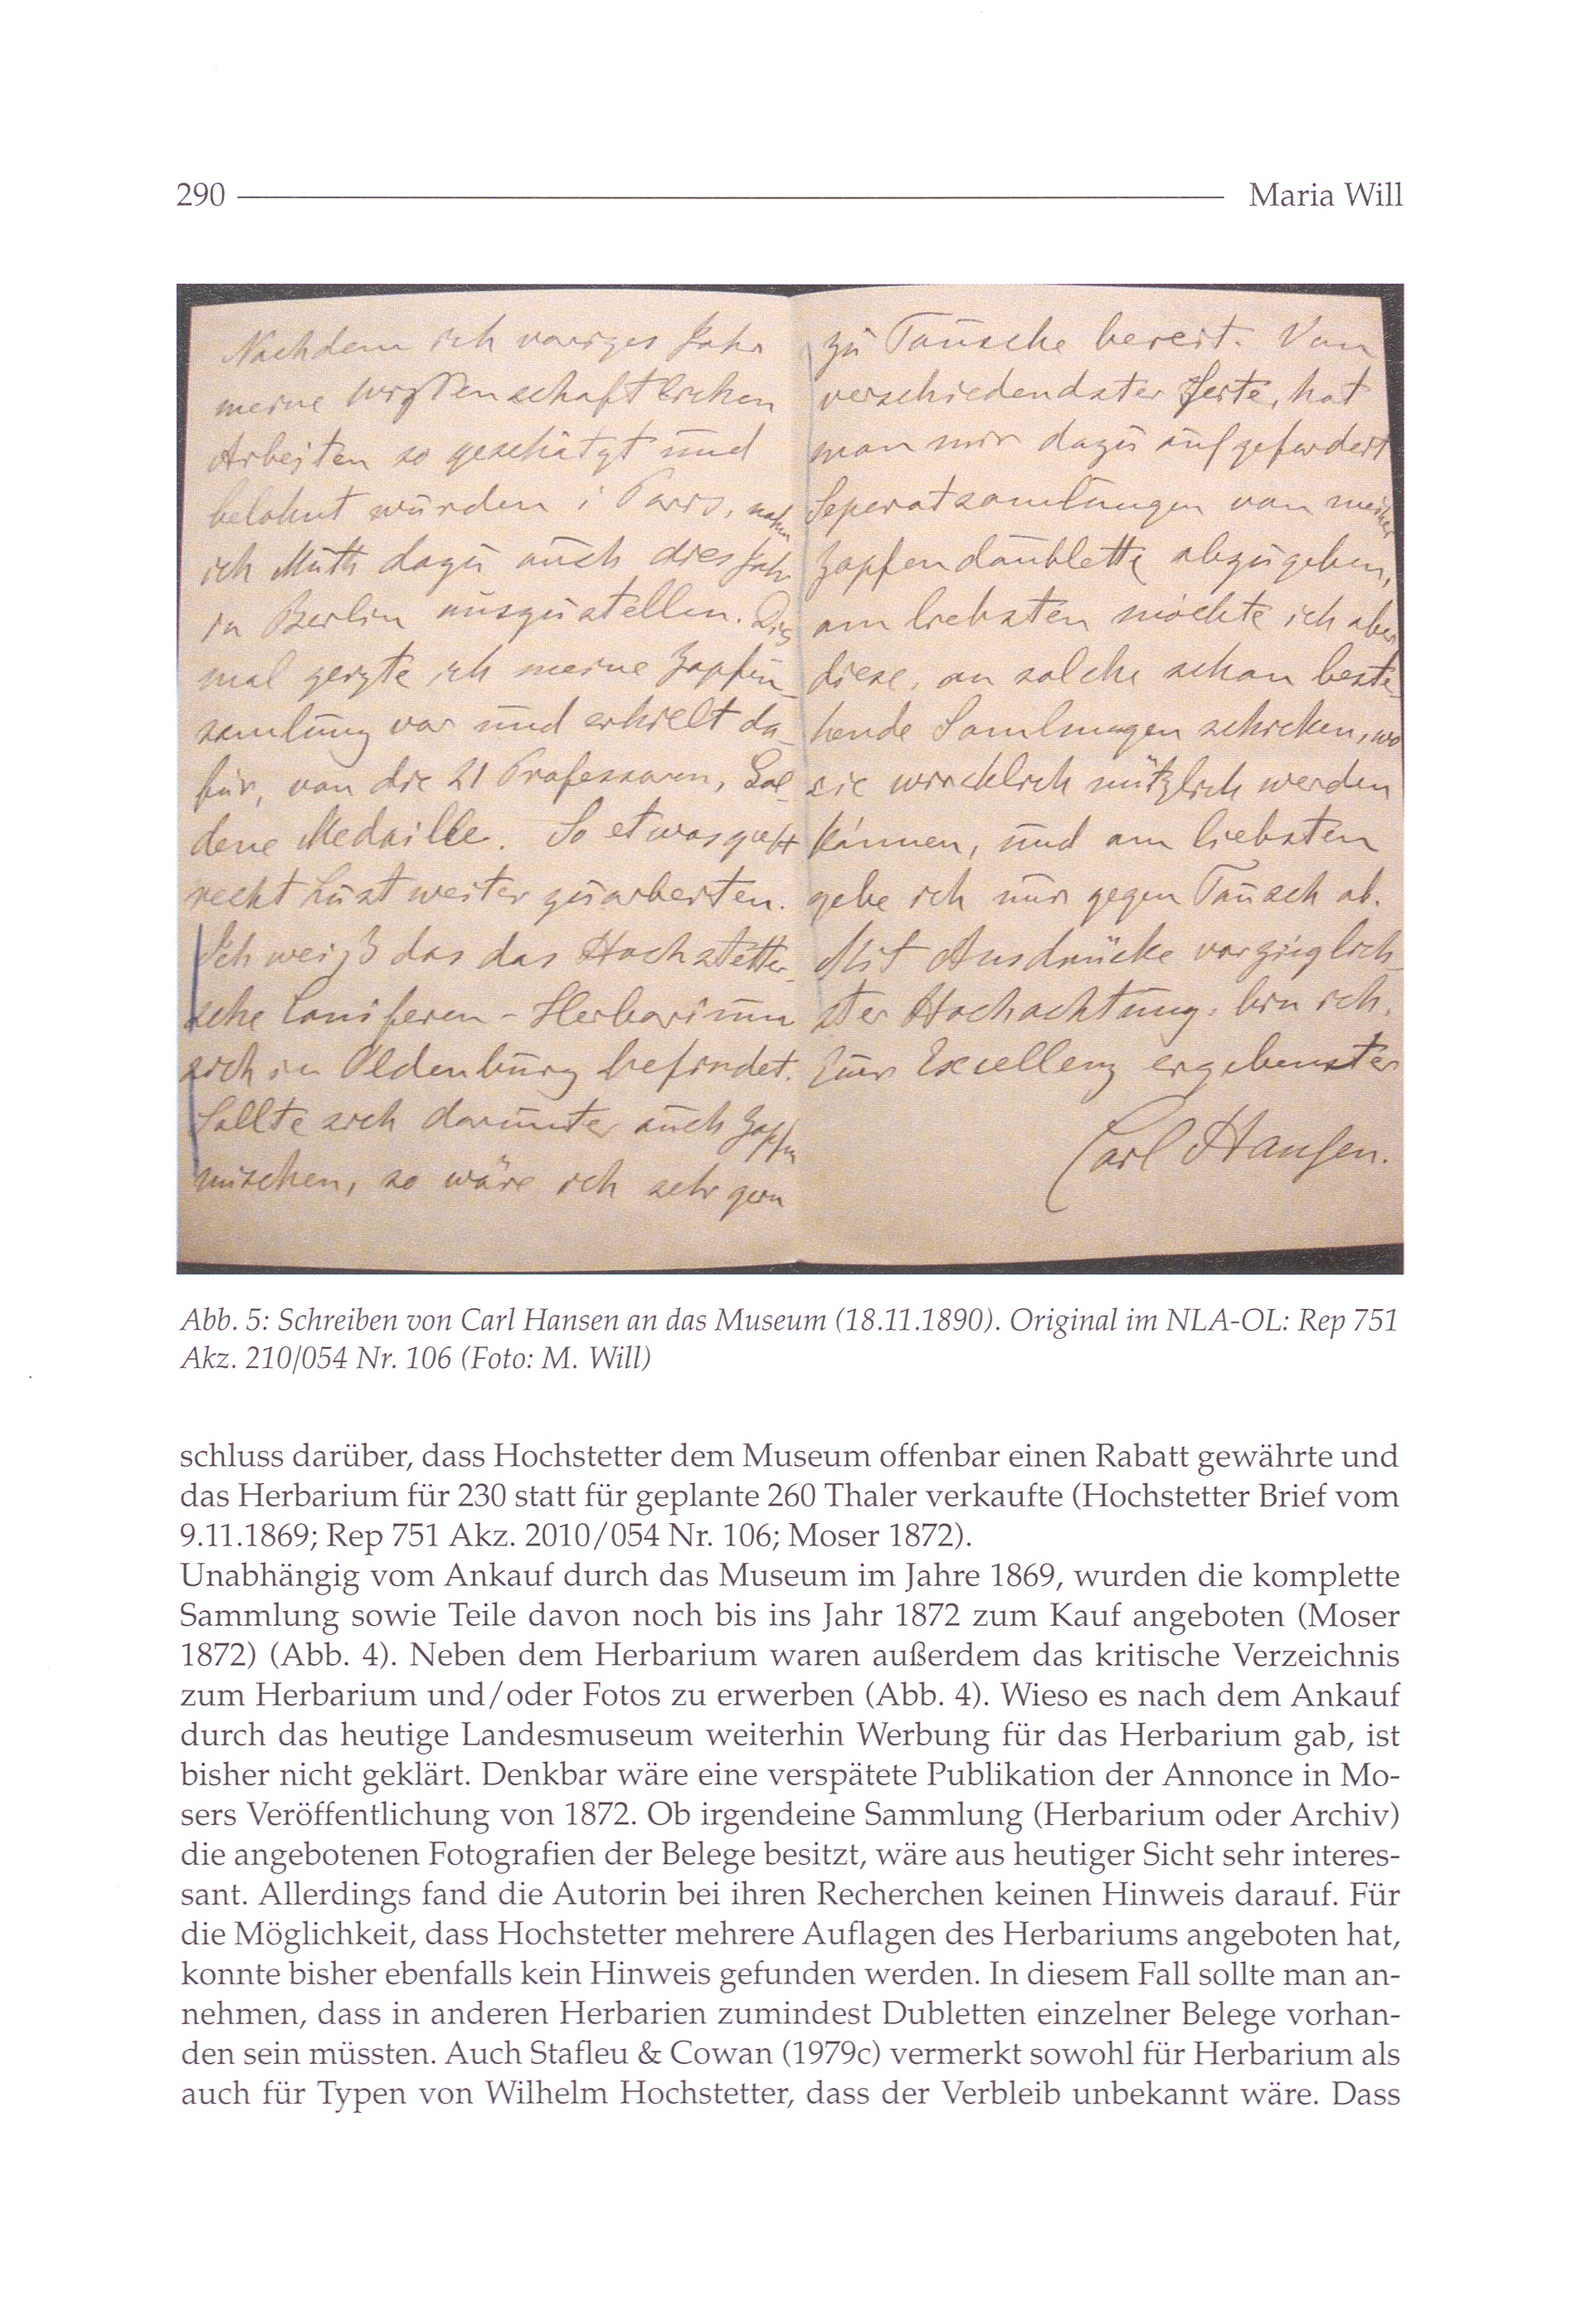 290 Maria Will
Nachdem ich voriges Jahr
meine wissenschaftlichen
Arbeiten so geschätzt und
belohnt wurden i Paris, nahm
ich Muth dazu auch dies Jahr
in Berlin auszustellen. Dies
mal zeigte ich meine Zapfen-
samlung vor und erhielt da-
für, von die 21 Professoren, Gol-
dene Medaille. So etwas giebt
recht Lust weiter zuarbeiten.
Ich weiß das das Hochstetter-
sche Coniferen-Herbarium
sich in Oldenburg befindet.
Sollte sich darunter auch Zapfen
mischen, so wäre ich sehr gern
zu Tausche bereit. Von
verschiedendster Seite, hat
man mir dazu aufgefordert
Seperatsamlungen von meiner
Zapfendoublette abzugeben,
am liebsten möchte ich aber
diese, an solche schon beste-
hende Samlungen schicken, wo
sie wircklich nützlich werden
können, und am liebsten
gebe ich nur gegen Tausch ab.
Mit Ausdrücke vorzüglich-
ster Hochachtung, bin ich,
Euer Excellenz ergebenster
Carl Hansen.
Abb. 5: Schreiben von Carl Hansen an das Museum (18.11.1890). Original im NLA-OL: Rep 751
Akz. 210/054 Nr. 106 (Foto: M. Will)
schluss darüber, dass Hochstetter dem Museum offenbar einen Rabatt gewährte und
das Herbarium für 230 statt für geplante 260 Thaler verkaufte (Hochstetter Brief vom
9.11.1869; Rep 751 Akz. 2010/054 Nr. 106; Moser 1872).
Unabhängig vom Ankauf durch das Museum im Jahre 1869, wurden die komplette
Sammlung sowie Teile davon noch bis ins Jahr 1872 zum Kauf angeboten (Moser
1872) (Abb. 4). Neben dem Herbarium waren außerdem das kritische Verzeichnis
zum Herbarium und/oder Fotos zu erwerben (Abb. 4). Wieso es nach dem Ankauf
durch das heutige Landesmuseum weiterhin Werbung für das Herbarium gab, ist
bisher nicht geklärt. Denkbar wäre eine verspätete Publikation der Annonce in Mo-
sers Veröffentlichung von 1872. Ob irgendeine Sammlung (Herbarium oder Archiv)
die angebotenen Fotografien der Belege besitzt, wäre aus heutiger Sicht sehr interes-
sant. Allerdings fand die Autorin bei ihren Recherchen keinen Hinweis darauf. Für
die Möglichkeit, dass Hochstetter mehrere Auflagen des Herbariums angeboten hat,
konnte bisher ebenfalls kein Hinweis gefunden werden. In diesem Fall sollte man an-
nehmen, dass in anderen Herbarien zumindest Dubletten einzelner Belege vorhan-
den sein müssten. Auch Stafleu & Cowan (1979c) vermerkt sowohl für Herbarium als
auch für Typen von Wilhelm Hochstetter, dass der Verbleib unbekannt wäre. Dass